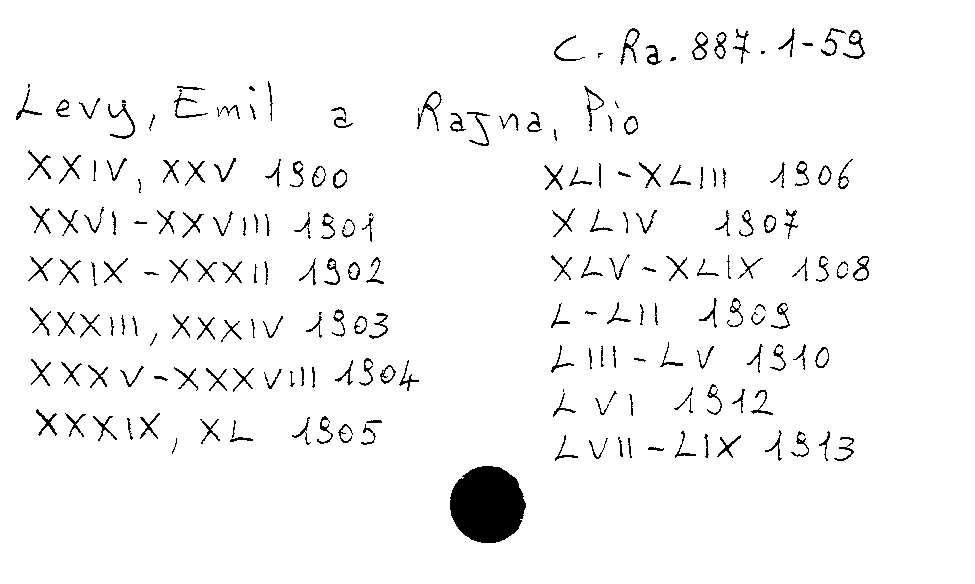 C. Ra. 887. 1-59
Levy, Emil a Rajna, Pio
XXIV, XXV 1900
XXVI - XXVIII 1901
XXIX - XXXII 1902
XXXIII, XXXIV 1903
XXXV - XXXVIII 1904
XXXIX, XL 1905
XLI - XLIII 1906
XLIV 1907
XLV - XLIX 1908
L - LII 1909
LIII - LV 1910
LVI 1912
LVII - LIX 1913